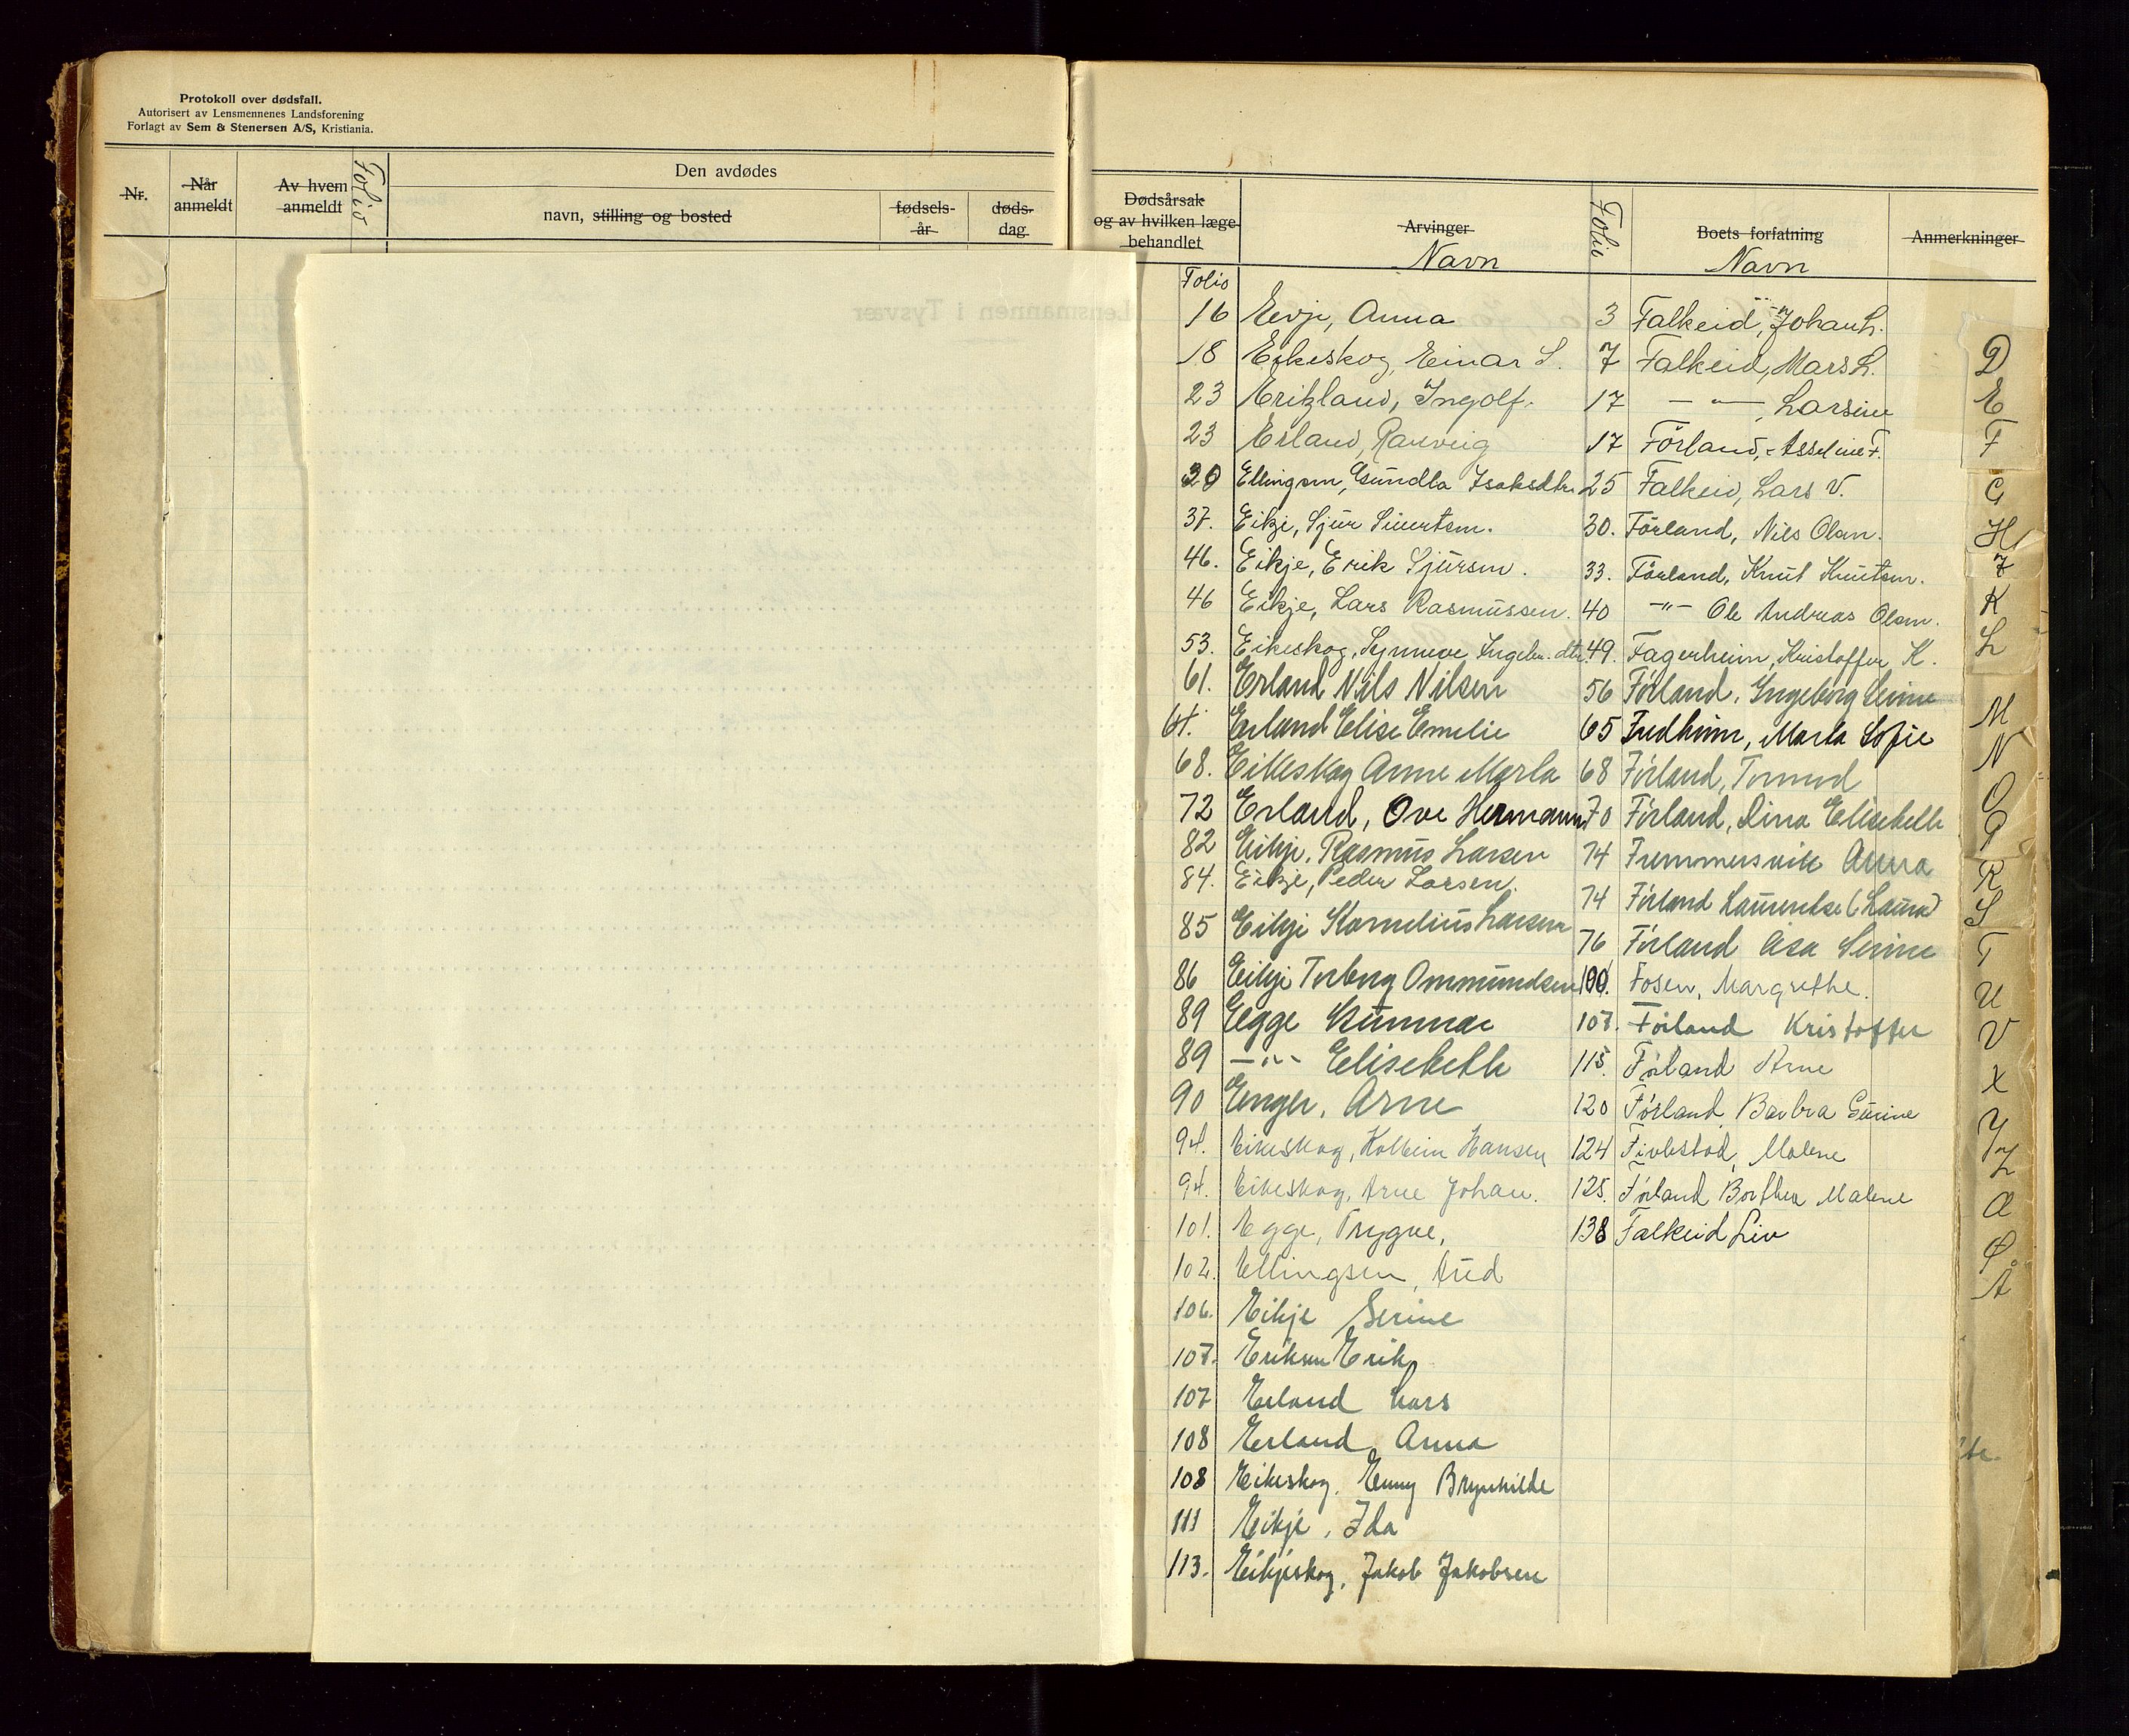 Protokoll over dødsfall.
Autorisert av Lensmennenes Landsforening
Forlagt av Sem & Stenersen A/S, Kristiania.
Nr.
Når anmeldt
Av hvem anmeldt
Folio
Den avdødes
navn, stilling og bosted
fødselsår
dødsdag
Lensmannen i Tysvær
Dødsårsak
og av hvilken læge
behandlet
Arvinger
Navn
Folio
Boets forfatning
Navn
Anmerkninger
Folio
16 Eevje, Anna
18 Eikeskog, Einar S.
23 Erikland, Ingolf.
23 Erland, Ranveig
30 Ellingsen, Gundla Isaksdtr.
37. Eikje, Sjur Siuertsen.
46. Eikje, Erik Sjursen.
46 Eikje, Lars Rasmussen.
53. Eikeskog, Synneve Ingebr. dtr.
61. Erland Nils Nilsen
61. Erland Elise Emelie
68. Eikeskog Anne Marta
72 Erland, Ove Hermann
82 Eikje, Rasmus Larsen
84. Eikje, Peder Larsen.
85 Eikje Kornelius Larsen
86 Eikje Torborg Ommundsen
89 Egge Gunnar
89 -"- Elisebeth
90 Enger, Arne
94. Eikeskog, Kolbein Hansen
94. Eikeskog, Arne Johan.
101. Egge, Trygve,
102. Ellingsen, Aud
106. Eikje Serine
107. Eriksen Erik
107 Erland Lars
108 Erland Anna
108 Eikeskog, Enny Brynhilde
111 Eikje, Ida
113. Eikjeskog, Jakob Jakobsen
3 Falkeid, Johan L.
7 Falkeid, Mars L.
17 — " — Larsine
17 Förland, Asseline F.
25 Falkeid, Lars V.
30. Förland, Nils Olsen.
33. Förland, Knut Knutsen.
40 -"- Ole Andreas Olsen.
49. Fagerheim, Kristoffer K.
56 Førland, Ingeborg Serine
65 Fredheim, Marta Sofie
68 Førland, Tormod
70 Førland, Lina Elisebeth
74 Fremmersvik Anna
74 Førland Laurentse (Laura)
76 Førland Åsa Serine
100. Fosen, Margrethe.
107. Førland Kristoffer
115. Førland Arne
120 Førland, Barbra Gurine
124 Fivlestad, Malene
125. Førland Borthea Malene
138 Falkeid Liv
D
E
F
G
H
J
K
L
M
N
O
P
R
S
T
U
V
X
Y
Z
Æ
Ø
Å